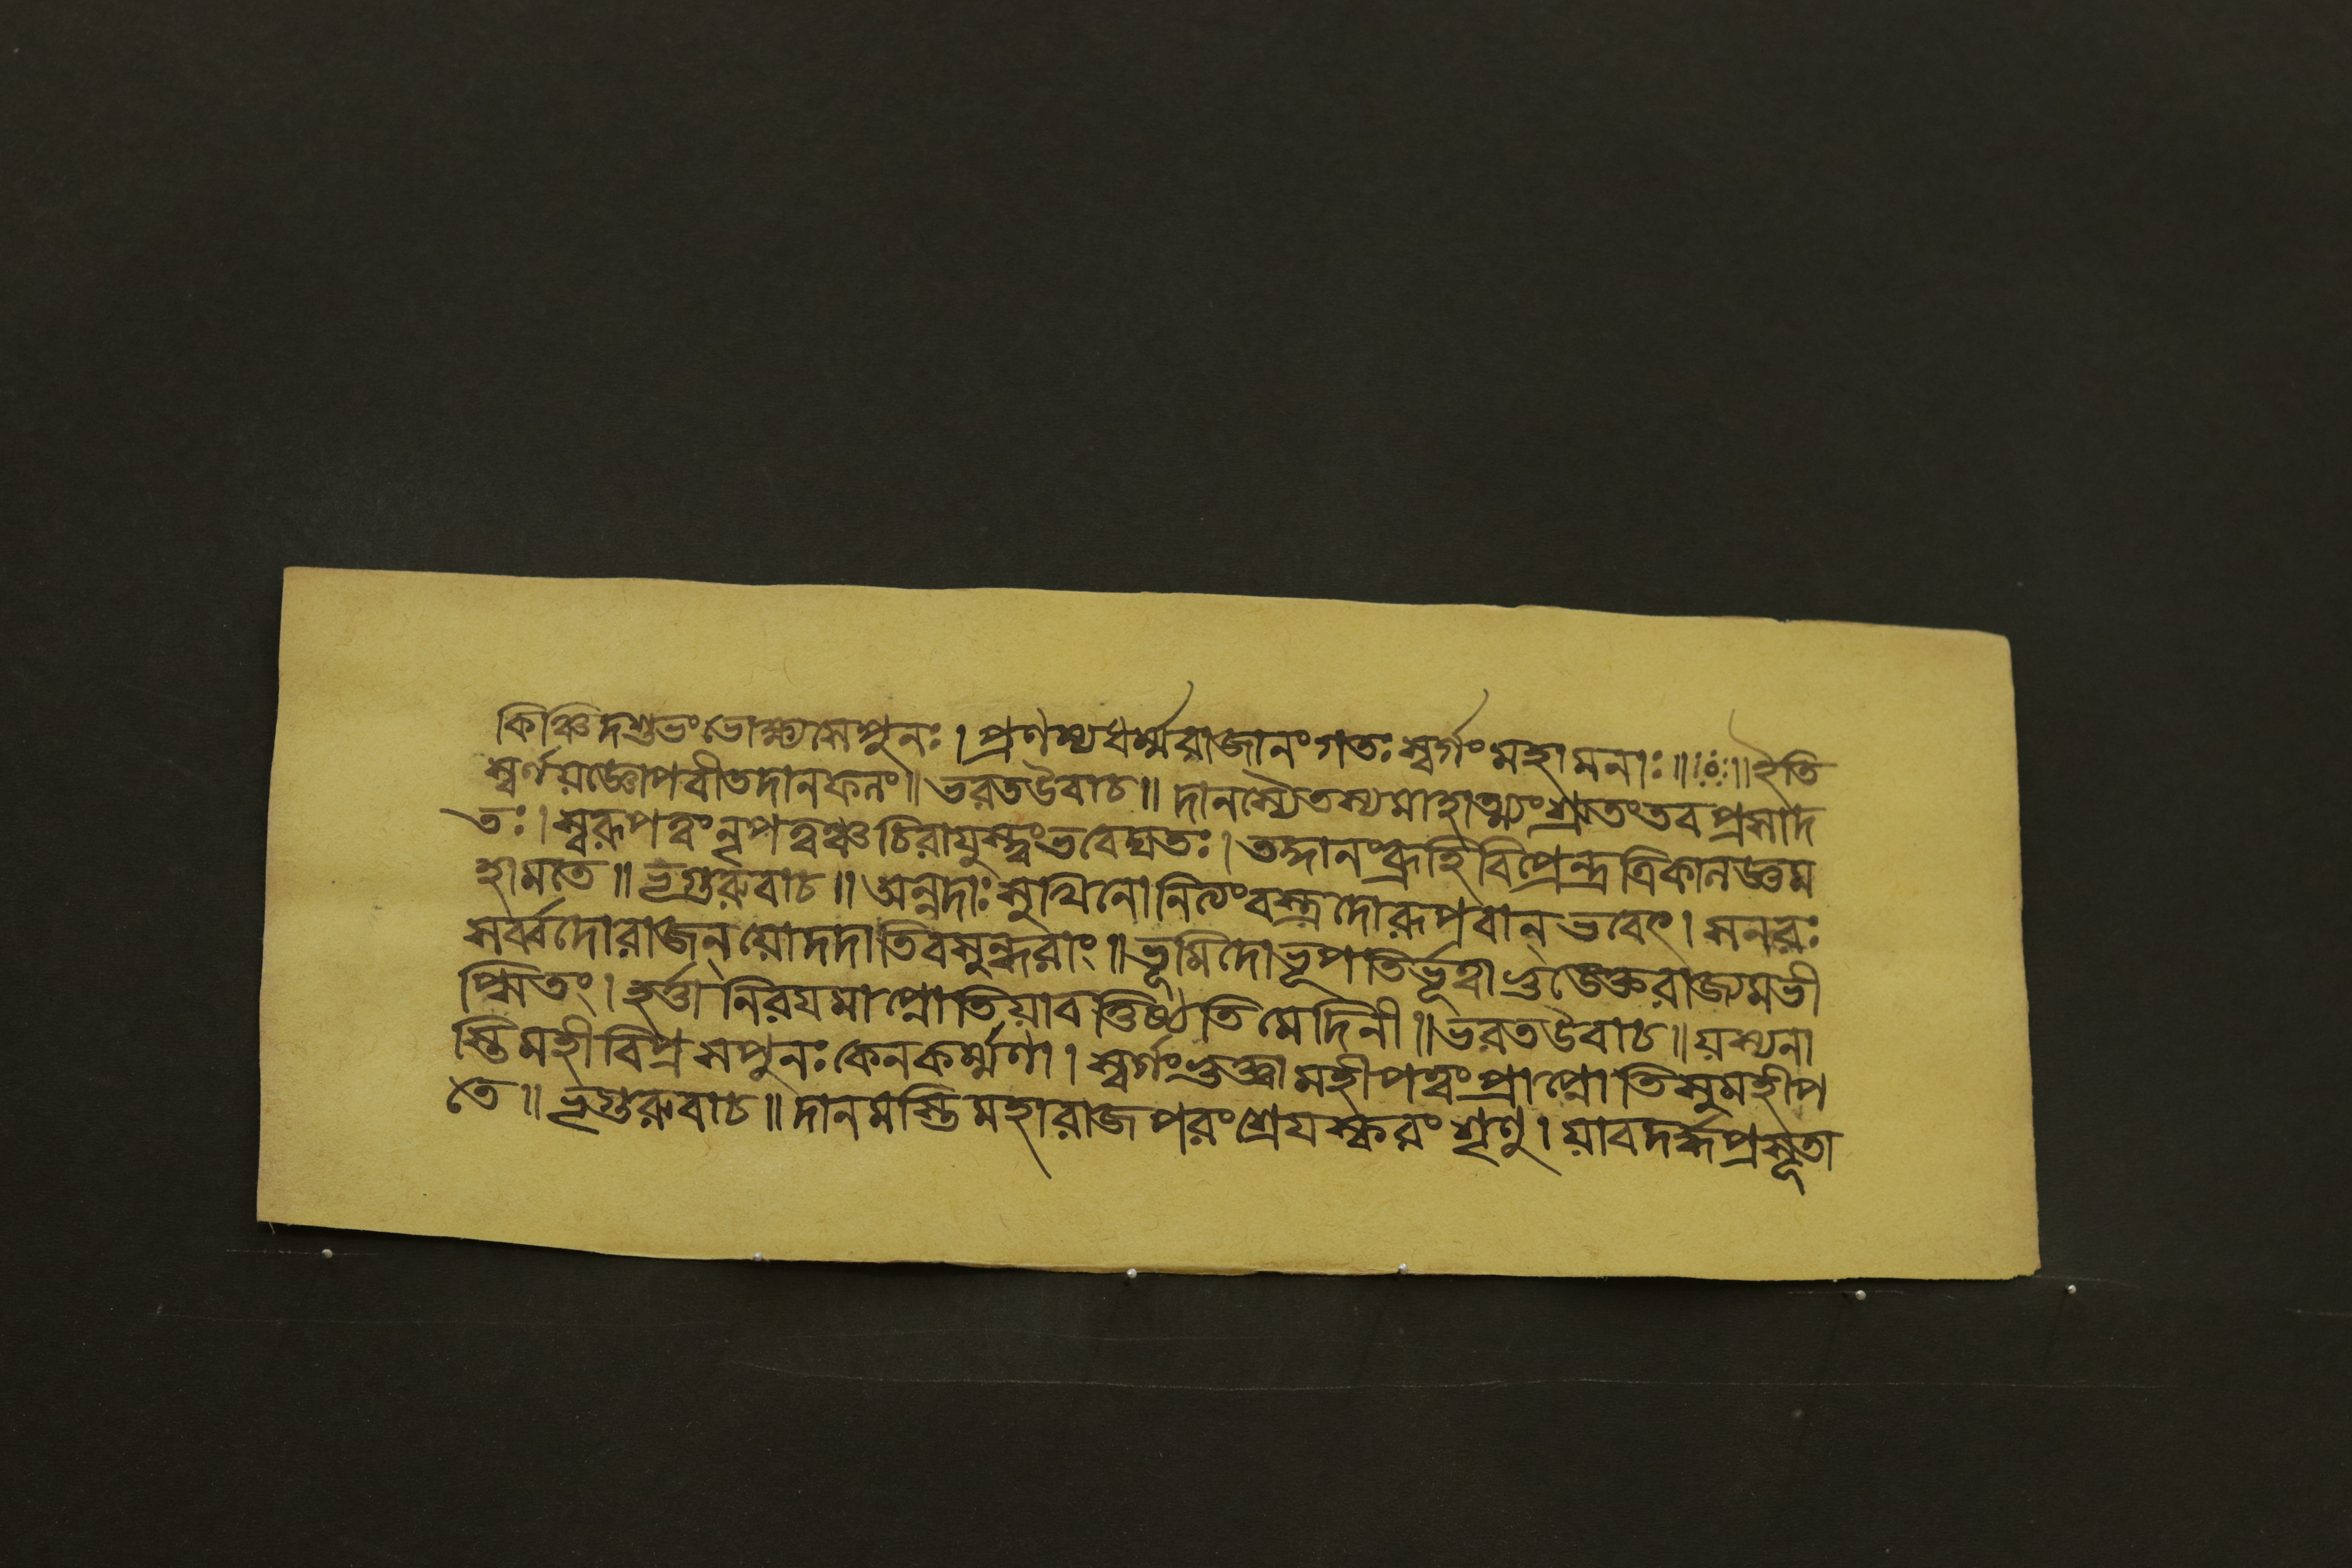 কিঞ্চিদশুভংভোক্ষ্যসেপুনঃ।প্রণম্যধর্ম্মরাজানংগতঃস্বর্গংমহামনাঃ॥ঃ০ঃ॥ইতি
স্বর্ণযজ্ঞোপবীতদানফলং॥ভরতউবাচ॥দানস্যৈতস্যমাহাত্ম্যংশ্রুতংতবপ্রসাদ
তঃ।স্বরূপত্বংনৃপত্বঞ্চচিরাযুস্ত্বংভবেদ্যতঃ।তদ্দানংব্রূহিবিপ্রেন্দ্রত্রিকালজ্ঞম
হামতে॥ভৃগুরুবাচ॥অন্নদাঃসুখিনোনিত্যংবস্ত্রদোরূপবান্ভবেৎ।সনরঃ
সর্ব্বদোরাজন্যোদদাতিবসুন্ধরাং॥ভূমিদোভূপতির্ভূত্বাভুঙেক্তরাজ্যমভী
প্সিতং।হর্ত্তানিরযমাপ্নোতিযাবত্তিষ্ঠতিমেদিনী॥ভরতউবাচ॥যস্যনা
স্তিমহীবিপ্রসপুনঃকেনকর্ম্মণা।স্বর্গংভুক্ত্বামহীপত্বংপ্রাপ্নোতিসুমহীপ
তে॥ভৃগুরুবাচ॥দানমস্তিমহারাজপরংশ্রেযস্করংশৃণু।যাবদর্দ্ধপ্রসূতা